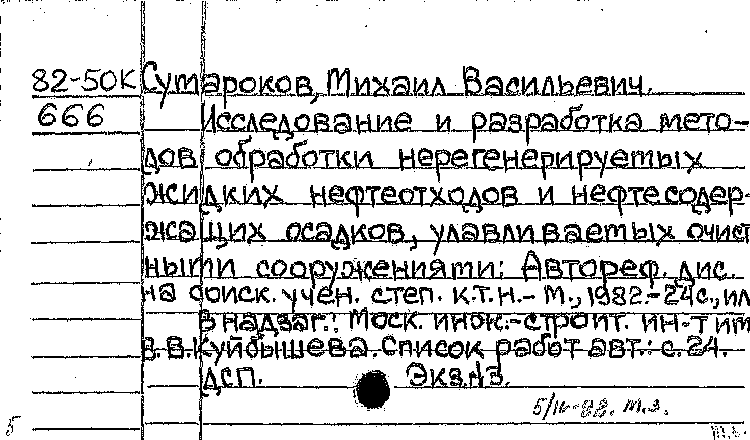 82-50К Сумароков, Михаил Васильевич.
666 Исследование и разработка мето-
дов обработки нерегенерируемых
жидких нефтеотходов и нефтесодер-
жащих осадков, улавливаемых очист
ными сооружениями: Автореф. дис.
на соиск. учен. степ. к.т.н.- М., 1982.-24с., ил
В надзаг.: Моск. инж.-строит. ин-т им
В.В.Куйбышева. Список работ авт.: с.24.
ДСП. Экз.№3.
5/IV-88. т.з.
5